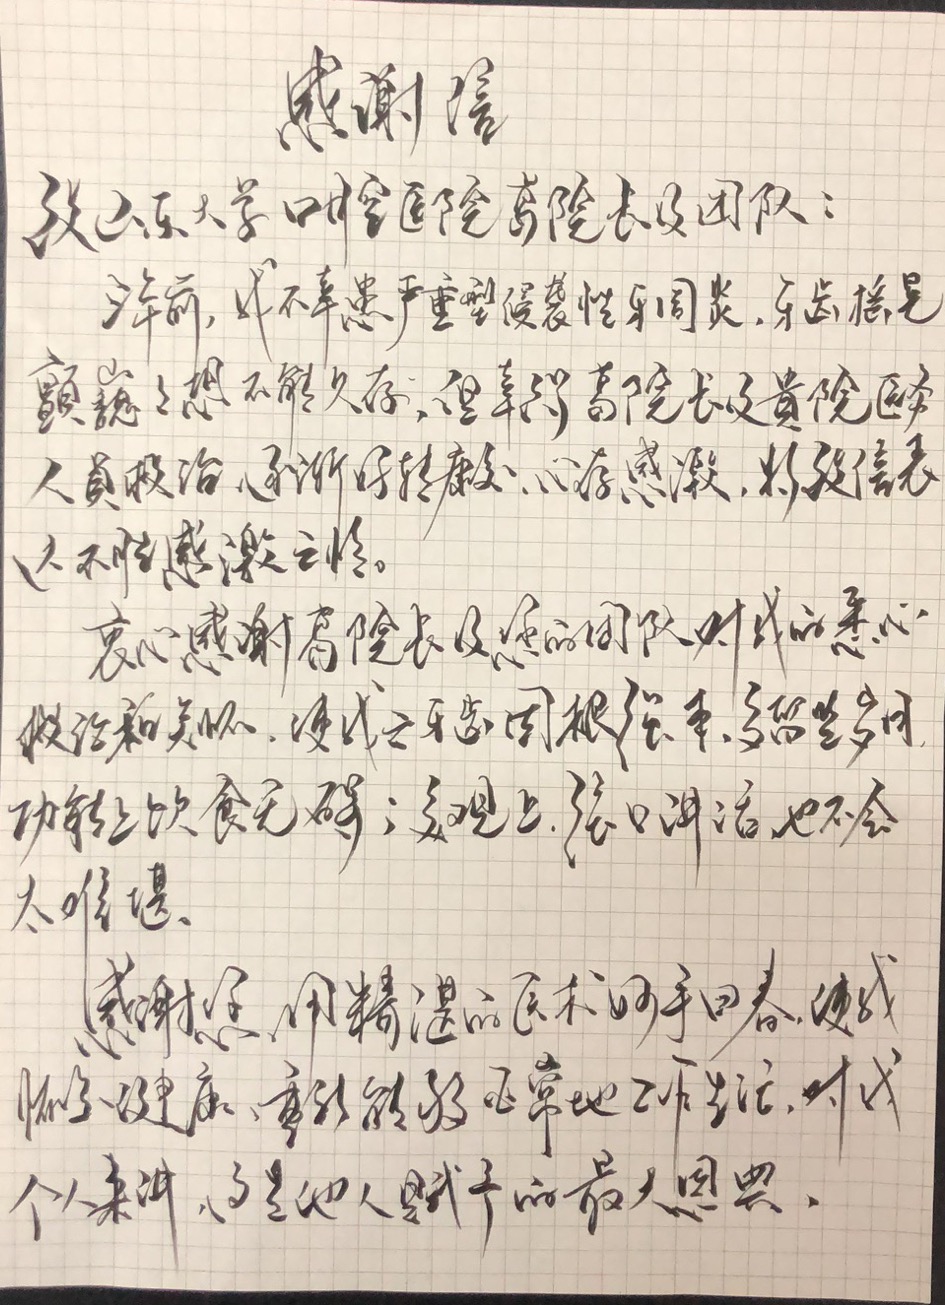 感谢信
致山东大学口腔医院葛院长及团队：
三年前，我不幸患严重型侵袭性牙周炎，牙齿摇晃
颤巍巍想不能久存，但幸得葛院长及貴院医务
人員救治，逐渐好转康复，心存感激，特致信表
达不胜感激之情。
衷心感谢葛院长及您的团队对我的悉心
救治和关怀，使我之牙齿固根强本，多留些岁月，
功能上饮食无碍；美观上，张口讲话也不会
太难堪。
感谢您，用精湛的医术妙手回春，使我
恢复健康，重新能够正常地工作生活，对我
个人来讲，乃是他人赋予的最大恩典。